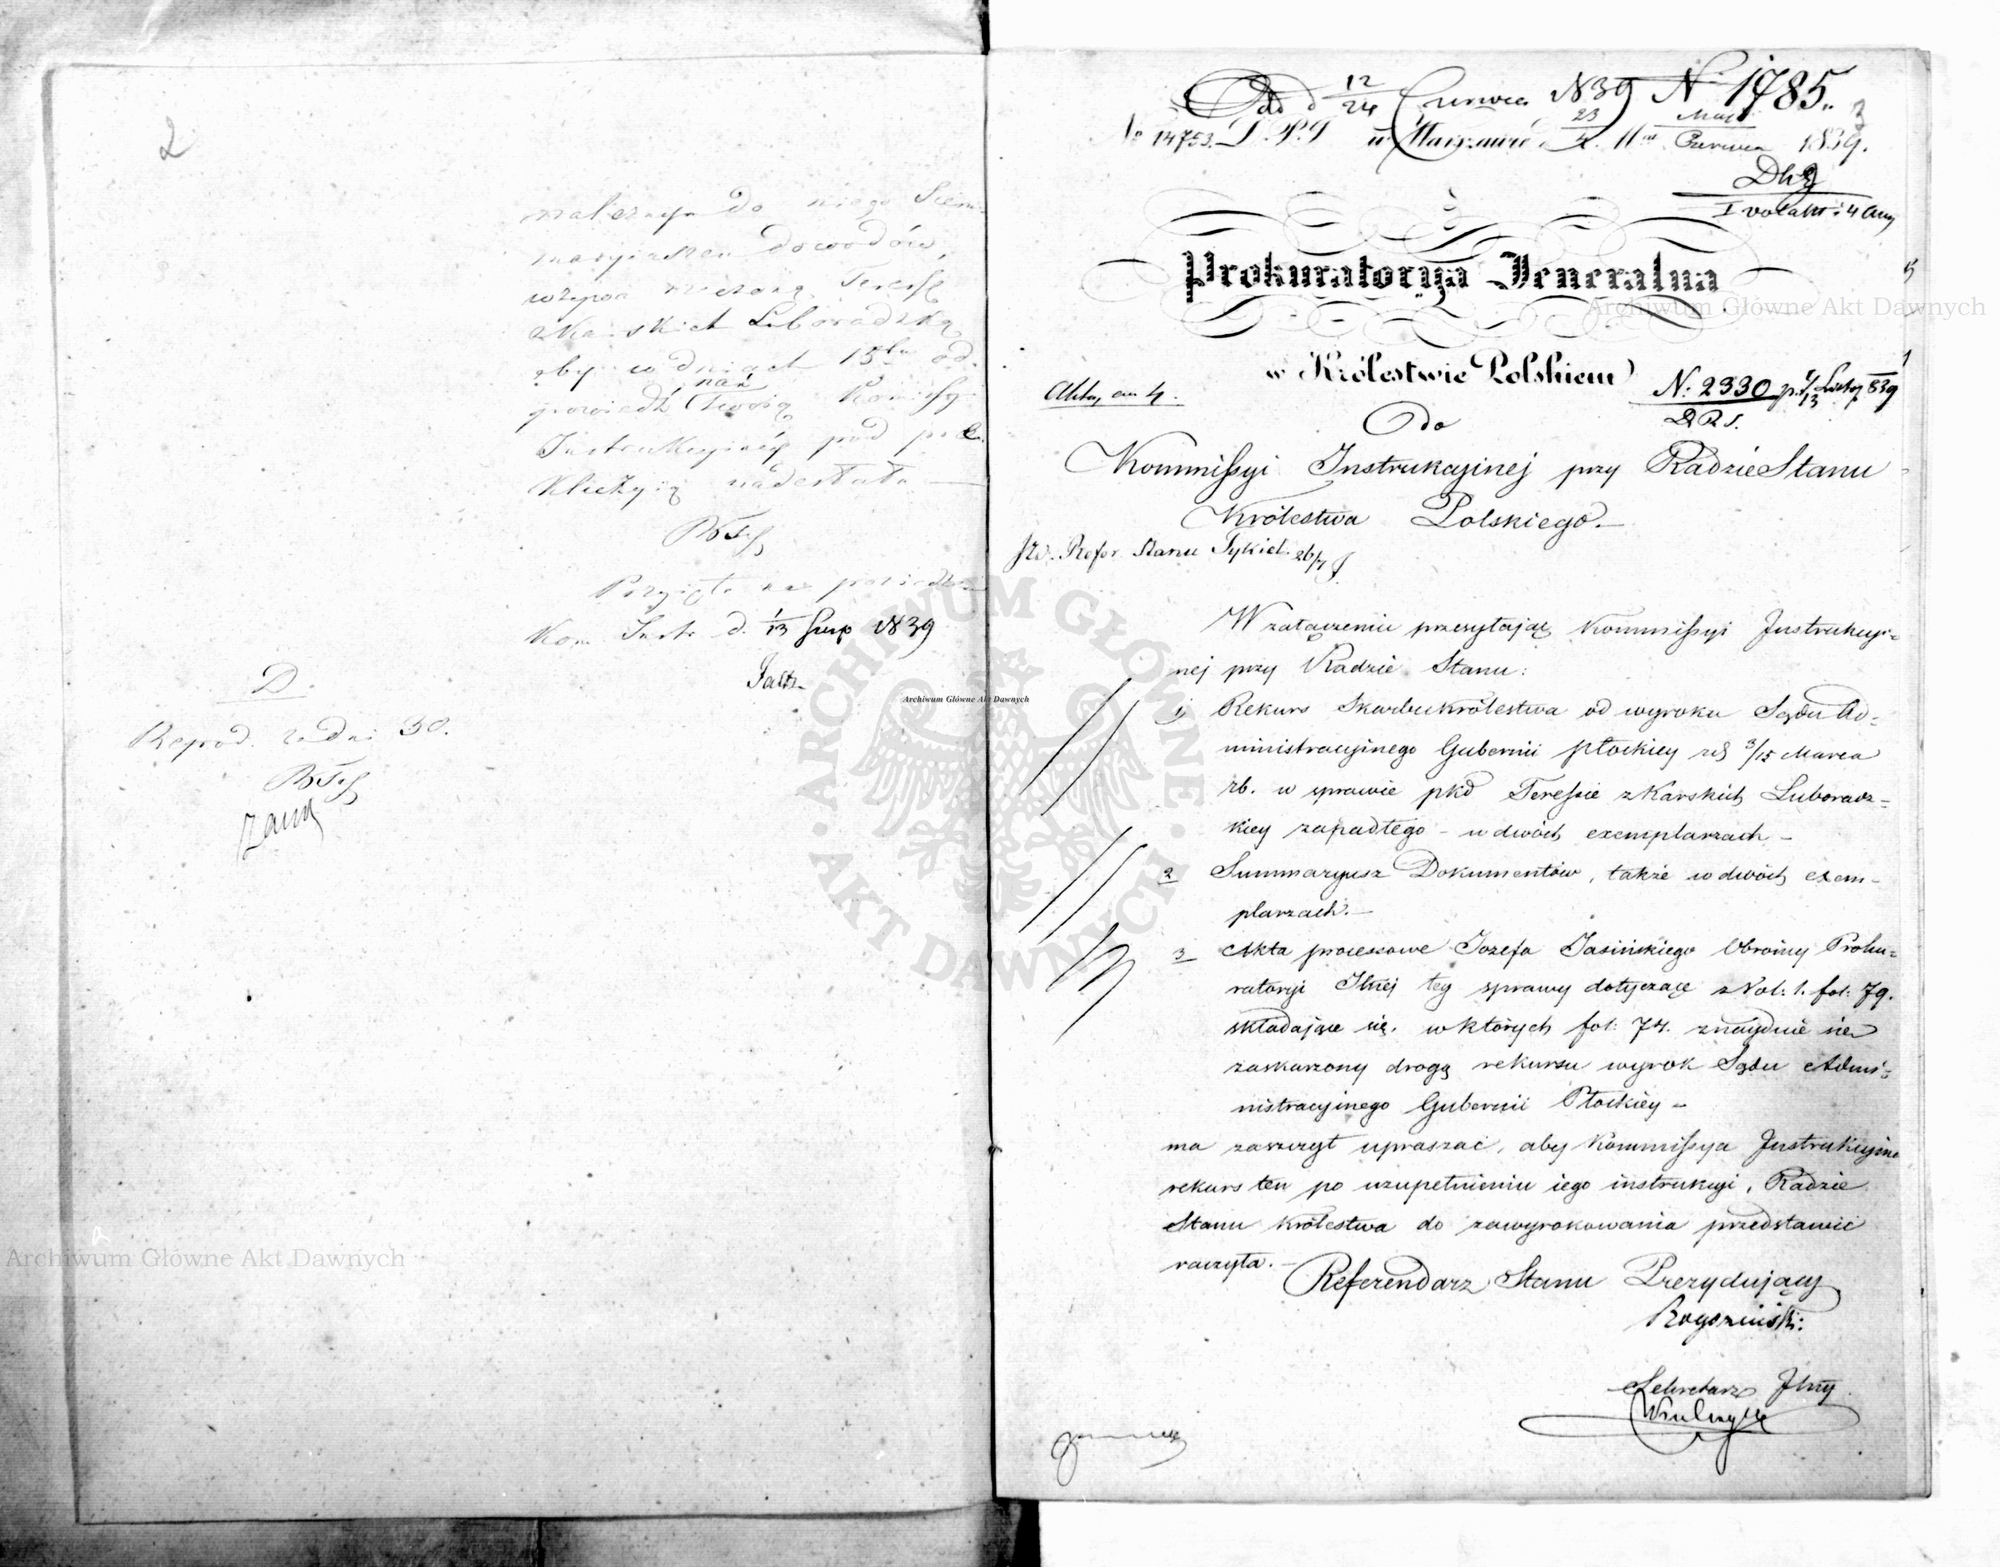 2
należącą do niego Sum-
maryuszem dowodów,
wezwać Teressę
z Karskich Luboradzką
aby w dniach 15tu od-
powiedź swoią na Kommissyi
Instrukcyinéy pod pre-
kluzyią nadesłała —
Przyięto na posiedzeniu
Kom. Instr. d. 1/13 Sierp 1839
D.
Reprod. za dni 30.
Pdo d 12/24 Czerwca 1839 N 1785.
3
No 14753. D. P. S w Warszawie d. 23 Maja / 4 Czerwca 1839.
I vol akt: i 4 anx
Prokuratorya Jeneralna
w Królestwie Polskiem
Akta, anx 4.
N: 2330 p. 1/13 Listop 839
Do
Kommissyi Instrukcyjnej przy Radzie Stanu
Królestwa Polskiego. —
JW. Refer. Stanu Tykiel.
W załączeniu przesyłając Kommissyi Instrukcyi-
nej przy Radzie Stanu:
1) Rekurs Skarbu Królestwa od wyroku Sądu Ad-
ministracyjnego Gubernii Płockiey z d 3/15 Marca
rb. w sprawie pko Teressie z Karskich Luboradz-
kiey zapadłego - w dwóch exemplarzach -
2 Summaryusz Dokumentów, także w dwóch exem-
plarzach. —
3 Akta processowe Jozefa Jasińskiego Obrońcy Proku-
ratoryi Jlnej tey sprawy dotyczące z Vol: 1. fol: 79.
składające się, w których fol: 74. znayduie sie
zaskarzony drogą rekursu wyrok Sądu Admi-
nistracyjnego Gubernii Płockiey -
ma zaszczyt upraszać, aby Kommissya Instrukcyina
rekurs ten po uzupełnieniu iego instrukcyi, Radzie
Stanu Królestwa do zawyrokowania przedstawić
raczyła. —
Referendarz Stanu Prezydujący
Rogoziński:
Sekretarz Jlny
Archiwum Główne Akt Dawnych
Archiwum Główne Akt Dawnych
Archiwum Główne Akt Dawnych
ARCHIWUM GŁÓWNE · AKT DAWNYCH ·